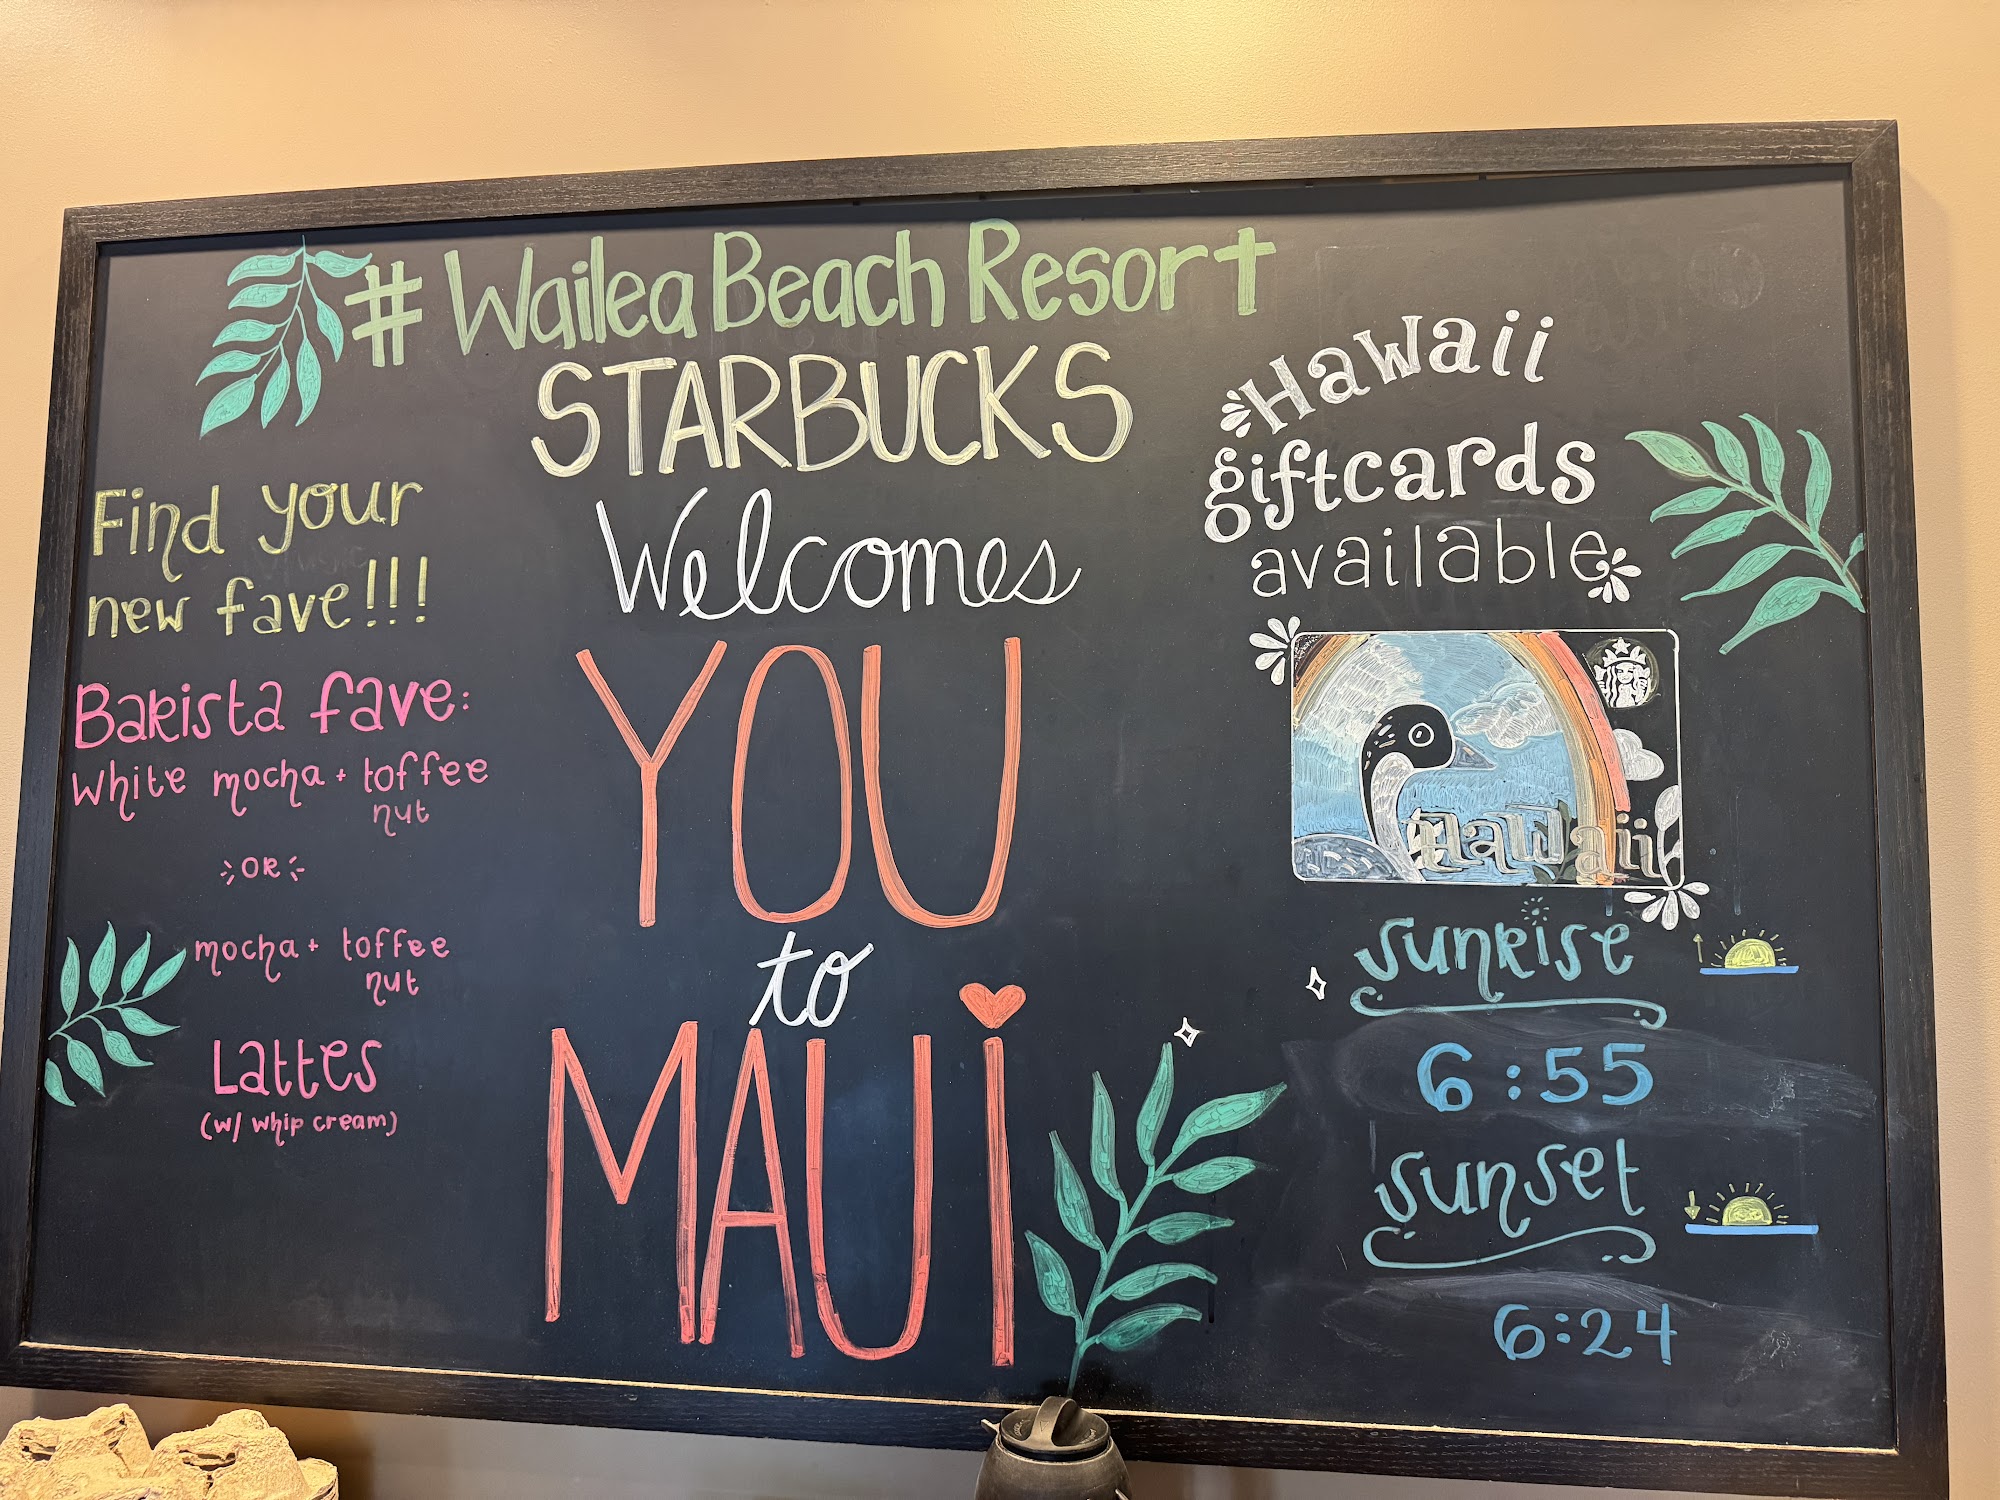 # Wailea Beach Resort
STARBUCKS
Welcomes
YOU
to
MAUi
Find your
new fave!!!
Barista fave:
White mocha + toffee
nut
OR
mocha + toffee
nut
Lattes
(w/ whip cream)
Hawaii
giftcards
available
Hawaii
sunrise
6:55
sunset
6:24